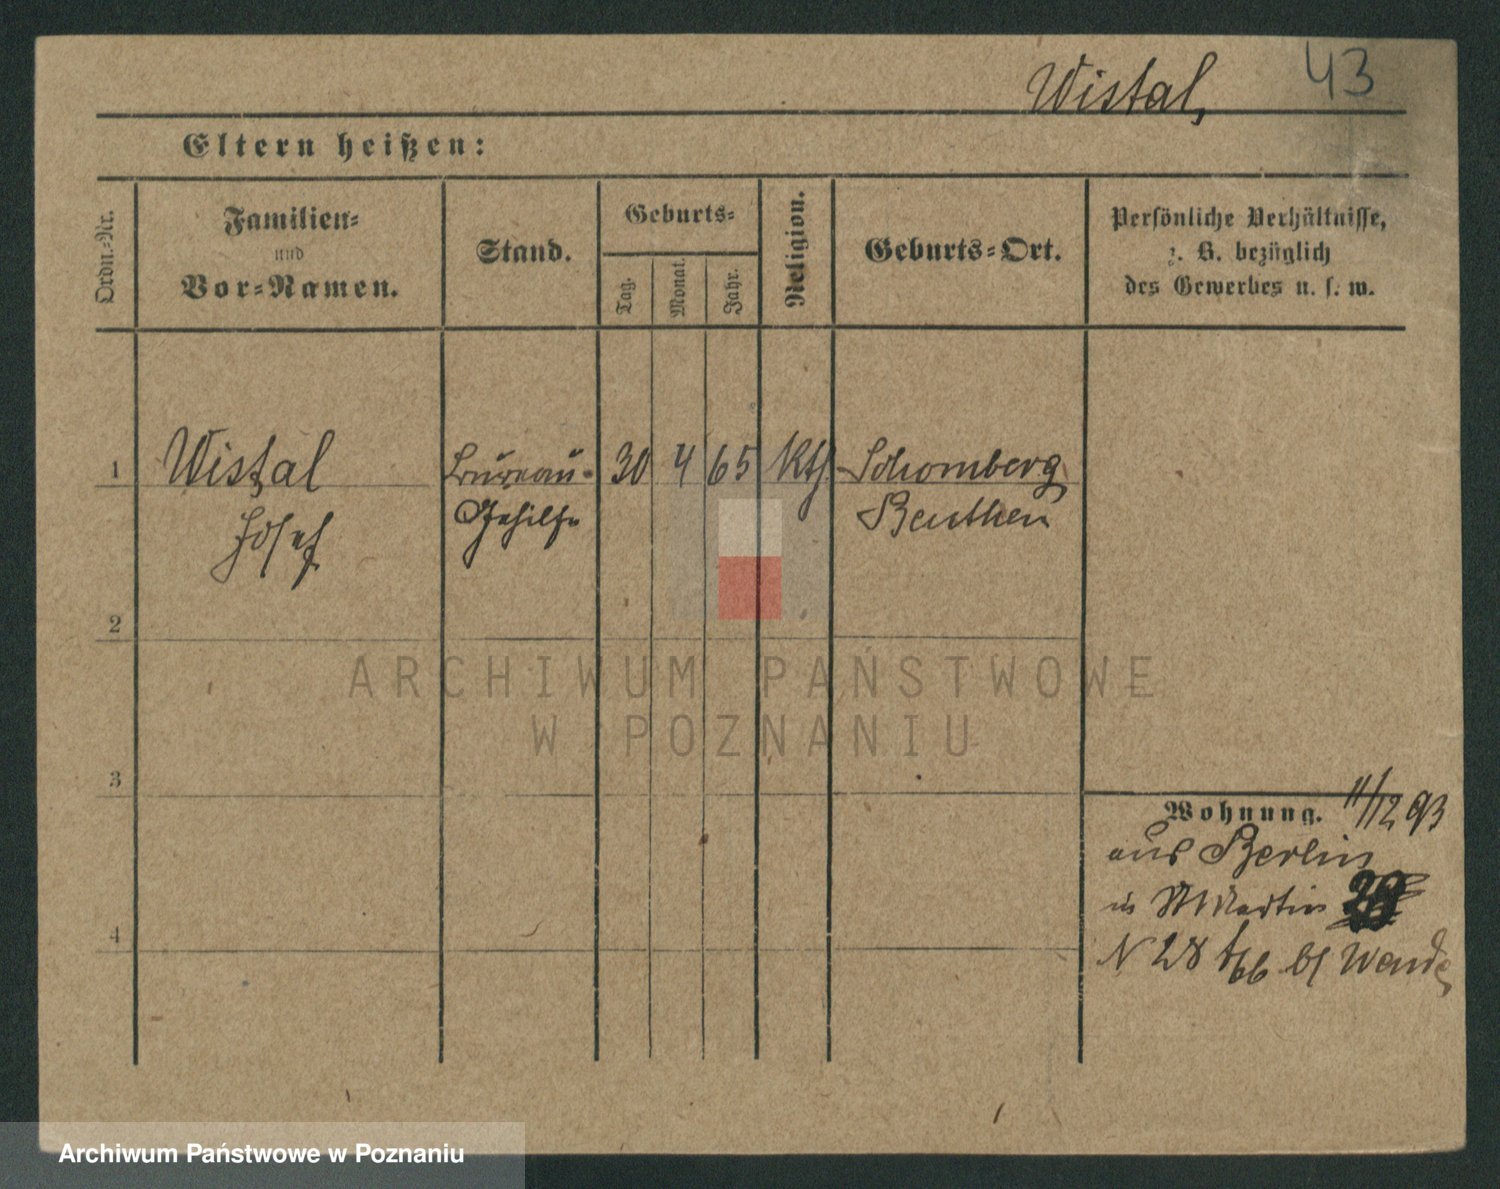 Wistal,
43
Eltern heißen:
Ordn.-Nr.
Familien-
und
Vor-Namen.
Stand.
Geburts-
Tag.
Monat.
Jahr.
Religion.
Geburts-Ort.
Persönliche Verhältnisse,
z. B. bezüglich
des Gewerbes u. s. w.
1 Wistal Bureau- 30 4 65 Kth. Schomberg
Josef Gehilfe Beuthen
2
ARCHIWUM PAŃSTWOWE
W POZNANIU
3
Wohnung. 11/12 93
aus Berlin
in St Martin
4
N 28 bb bei Wende
Archiwum Państwowe w Poznaniu